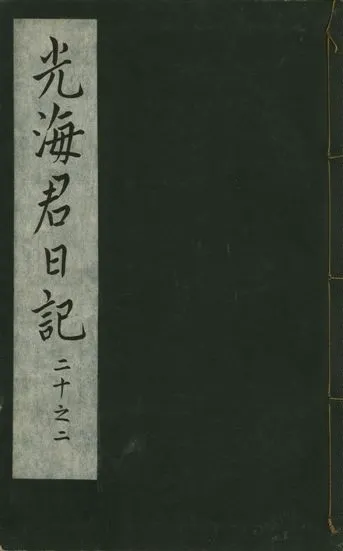 光海君日記
二十之二